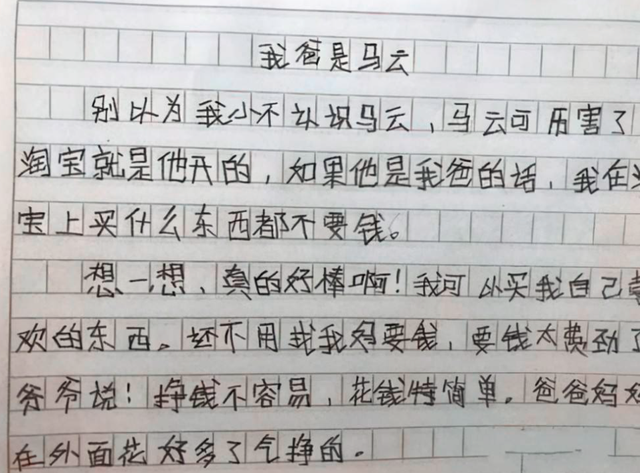 我爸是马云
别以为我小不认识马云，马云可历害了
淘宝就是他开的，如果他是我爸的话，我在
宝上买什么东西都不要钱。
想一想，真的好棒啊！我可以买我自己喜
欢的东西。还不用找我妈要钱，要钱太费劲了
爷爷说！挣钱不容易，花钱特简单。爸爸妈妈
在外面花好多了气挣的。